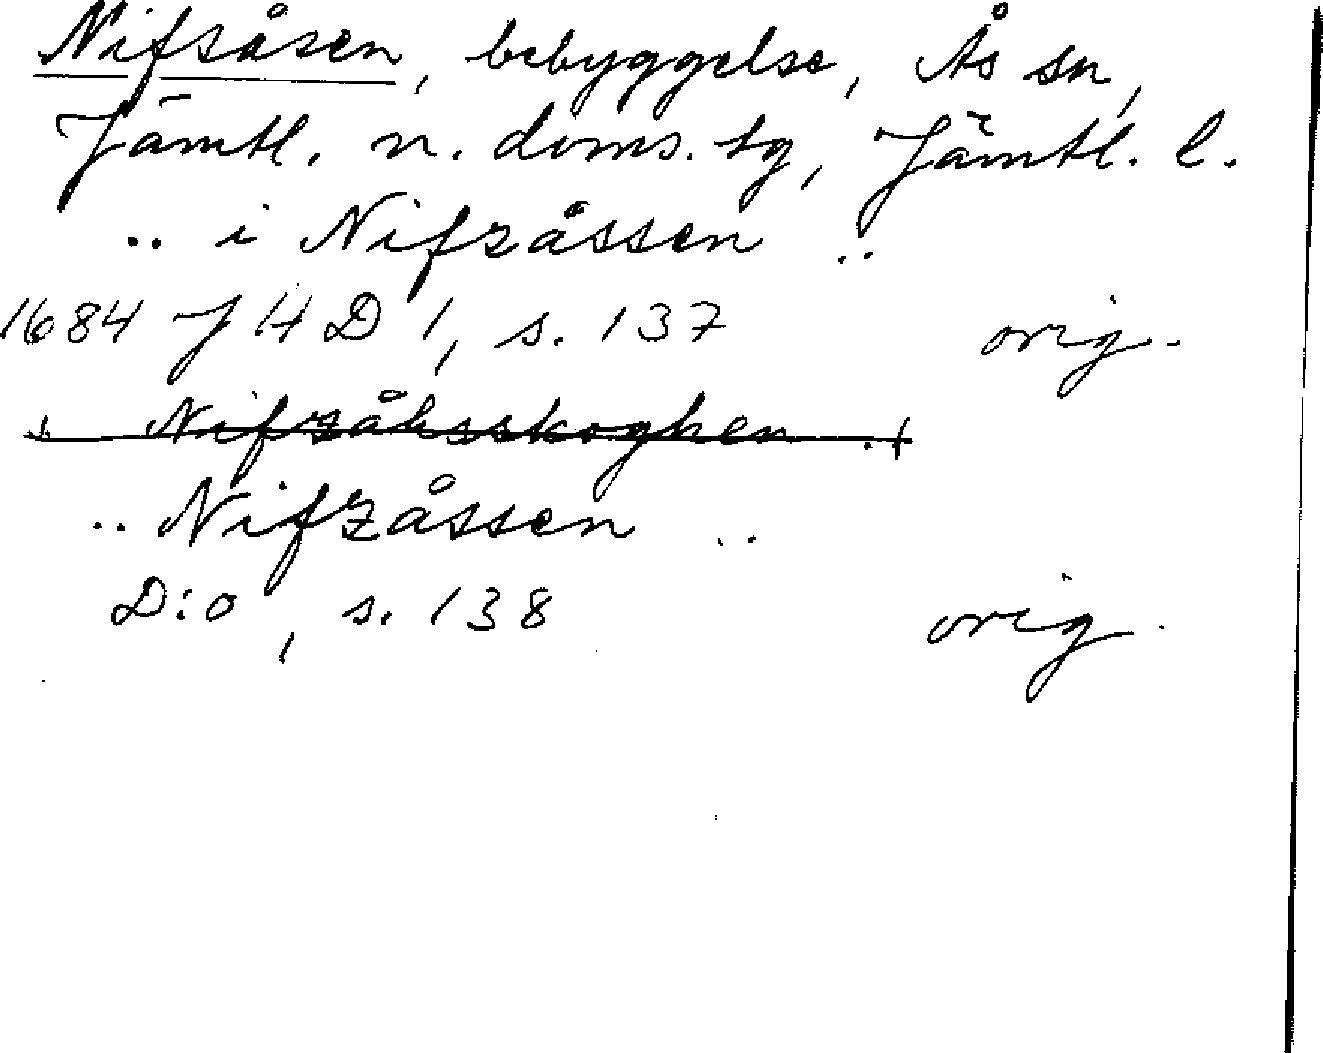 Nifsåsen, bebyggelse, Ås sn,
Jämtl. n. doms. tg, Jämtl. l.
.. i Nifzåssen ..
1684 JHD 1, s. 137 orig.
.. Nifzåhsskoghen ..
.. Nifzåssen ..
D:o, s. 138 orig.